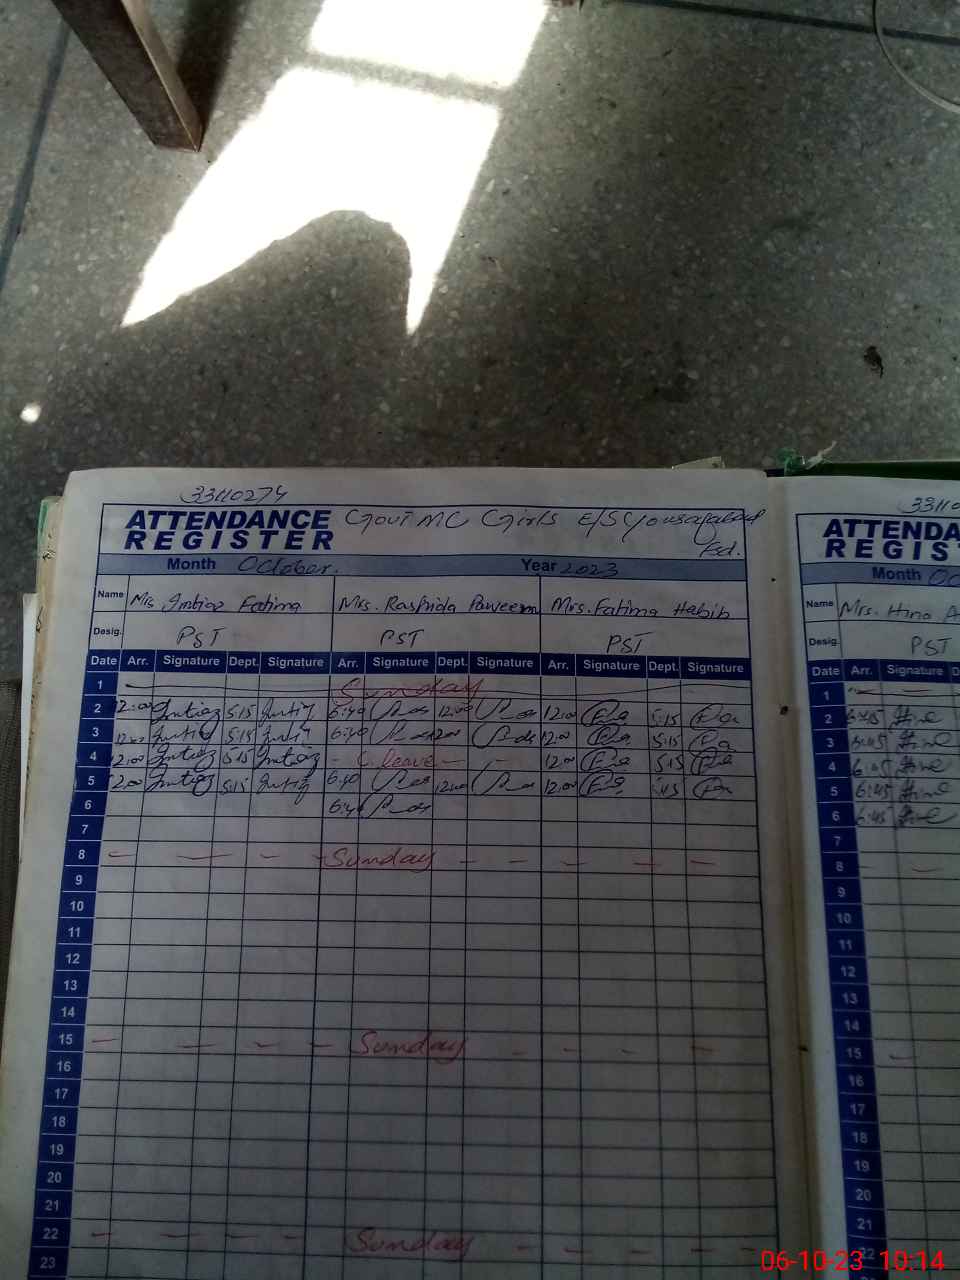 33110274
ATTENDANCE REGISTER Govt MC Girls E/S Yousafabad Fsd.
Month October. Year 2023
Name Mrs Imtiaz Fatima Mrs. Rashida Parveen Mrs. Fatima Habib
Desig. PST PST PST
Date Arr. Signature Dept. Signature Arr. Signature Dept. Signature Arr. Signature Dept. Signature
1 Sunday
2 12:00 Imtiaz 5:15 Imtiaz 6:40 12:00 12:00 5:15
3 12:00 Imtiaz 5:15 Imtiaz 6:40 12:00 12:00 5:15
4 12:00 Imtiaz 5:15 Imtiaz - C. leave - - 12:00 5:15
5 12:00 Imtiaz 5:15 Imtiaz 6:40 12:00 12:00 5:45
6 6:40
7
8 Sunday
9
10
11
12
13
14
15 Sunday
16
17
18
19
20
21
22 Sunday
23
3311
ATTENDA
REGIST
Month Oc
Name Mrs. Hina A
Desig. PST
Date Arr. Signature D
1
2 6:45 Hina
3 6:45 Hina
4 6:45 Hina
5 6:45 Hina
6 6:45 Hina
7
8
9
10
11
12
13
14
15
16
17
18
19
20
21
22
06-10-23 10:14